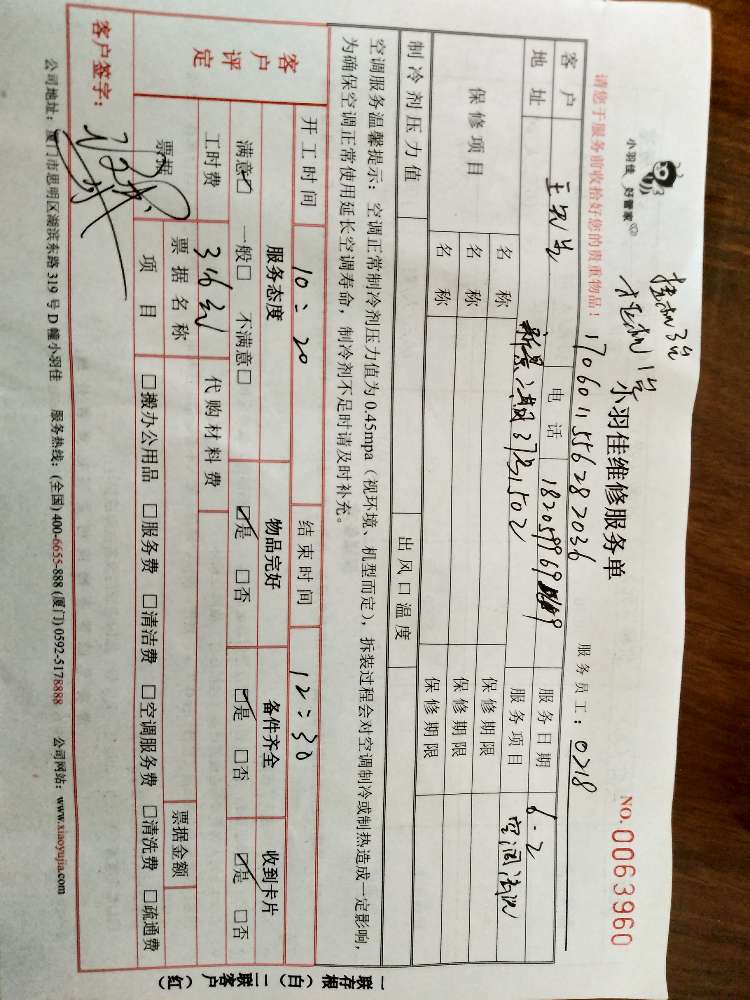 小羽佳 好管家
挂机3台
柜机1台
小羽佳维修服务单
NO. 0063960
请您于服务前收拾好您的贵重物品！
17060115562 82036
服务员工：0218
客户 王先生 电话 服务日期 6-2
地址 新景 37号1502 服务项目 空调清洗
保修项目 名称 保修期限
名称 保修期限
名称 保修期限
制冷剂压力值 出风口温度
空调服务温馨提示：空调正常制冷剂压力值为0.45mpa（视环境、机型而定），拆装过程会对空调制冷或制热造成一定影响，
为确保空调正常使用延长空调寿命，制冷剂不足时请及时补充。
开工时间 10:20 结束时间 12:30
客户评定 服务态度 物品完好 备件齐全 收到卡片
满意☑ 一般☐ 不满意☐ ☑是 ☐否 ☑是 ☐否 ☑是 ☐否
工时费 316元 代购材料费
票据 票据名称 票据金额
项目 ☐搬办公用品 ☐服务费 ☐清洁费 ☐空调服务费 ☐清洗费 ☐疏通费
客户签字：
公司地址：厦门市思明区湖滨东路319号D幢小羽佳 服务热线：(全国) 400-6655-888 (厦门) 0592-5178888 公司网站：www.xiaoyujia.com
一联存根（白） 二联客户（红）